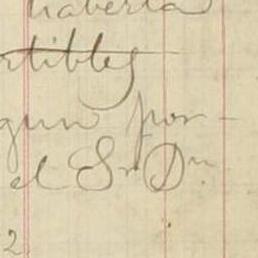 haberla
rtibles
gun por-
el Sr Dn
2